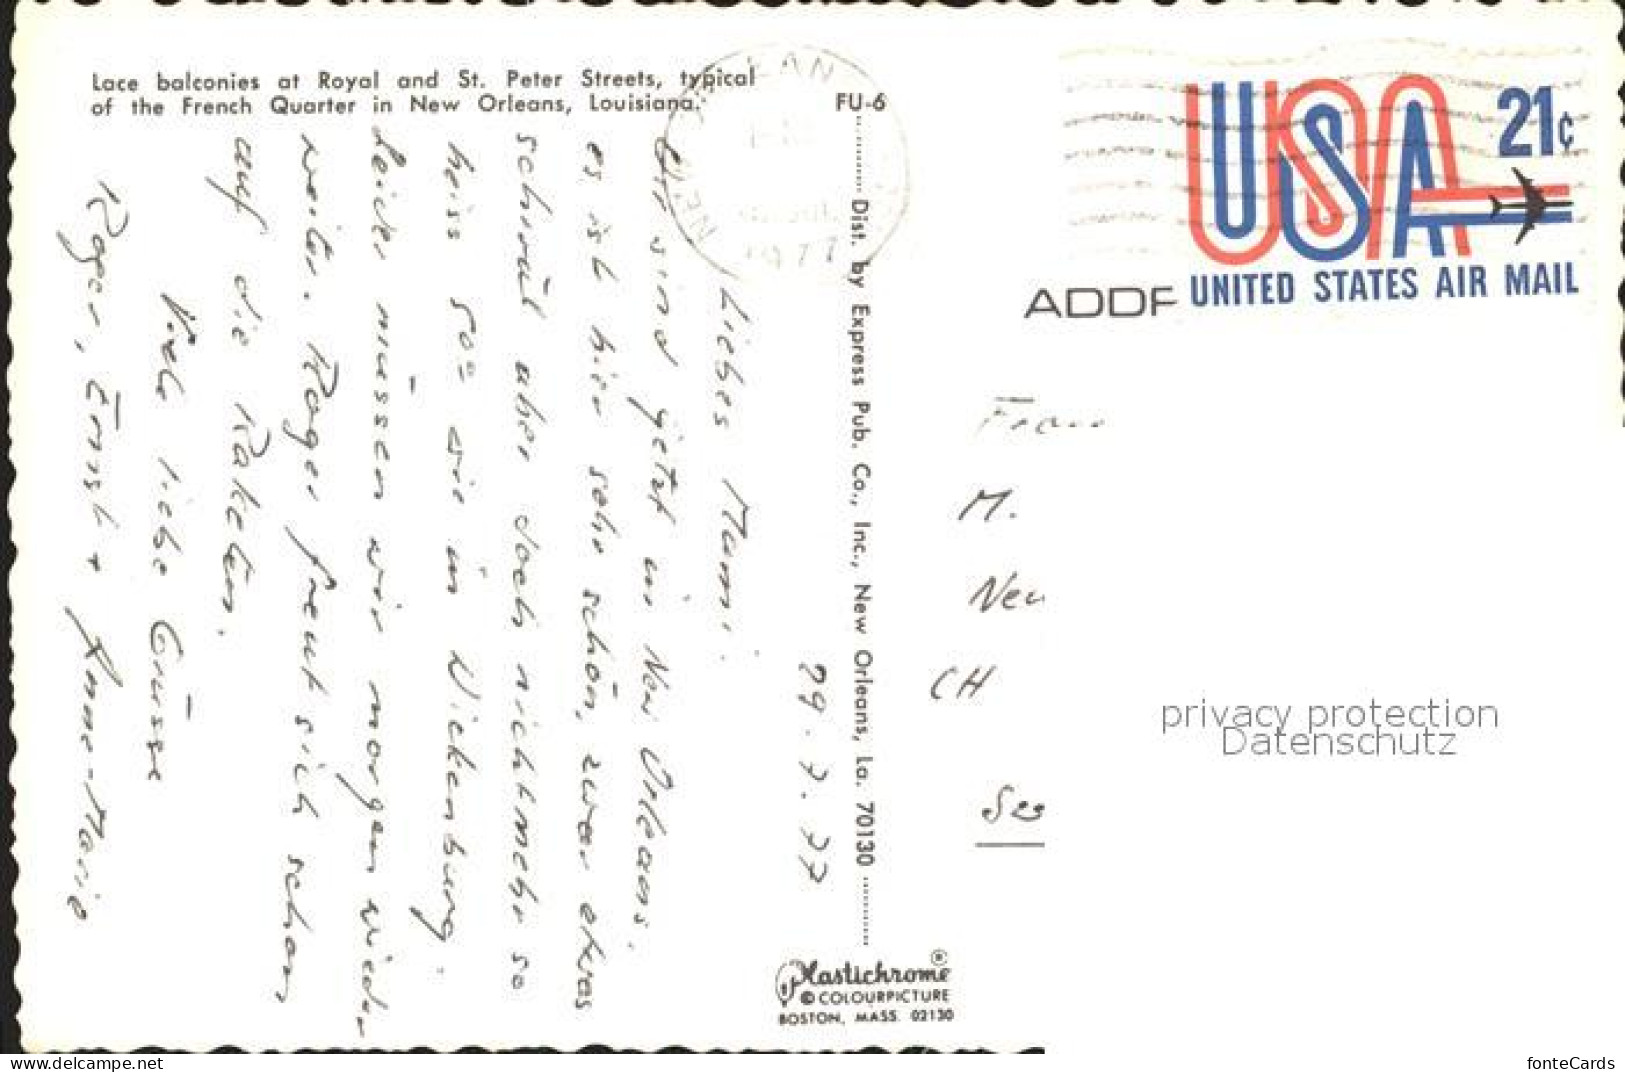 Lace balconies at Royal and St. Peter Streets, typical
of the French Quarter in New Orleans, Louisiana.
FU-6
29.7.77
Liebes Mami.
Wir sind jetzt in New Orleans.
es ist hier sehr schön, zwar etwas
schwül aber doch nicht mehr so
heiss so wie in Wickenburg.
Leider müssen wir morgen wieder
weiter. Roger freut sich schon
auf die Raketen.
Viele liebe Grüsse
Roger, Ernst + Anne-Marie
Dist. by Express Pub. Co., Inc., New Orleans, La. 70130
Plastichrome ®
© COLOURPICTURE
BOSTON, MASS. 02130
NEW
1977
USA 21c
UNITED STATES AIR MAIL
ADD
Frau
M.
CH
privacy protection
Datenschutz
www.delcampe.net
fonteCards